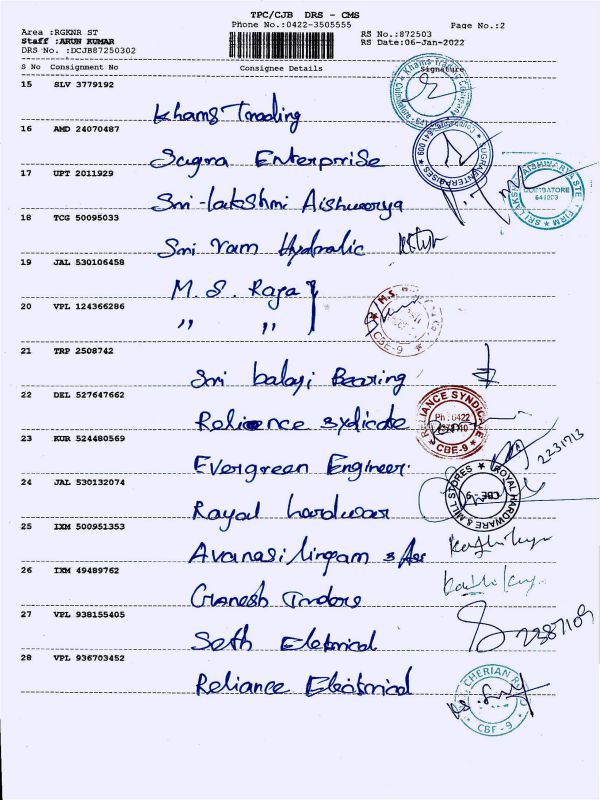 TPC/CJB DRS - CMS
Phone No.:0422-3505555
Page No.:2
Area :RGKNR ST
Staff :ARUN KUMAR
DRS No. :DCJB87250302
RS No.:872503
RS Date:06-Jan-2022
S No Consignment No Consignee Details Signature
15 SLV 3779192
Khams Trading
16 AMD 24070487
Sugra Enterprise
17 UPT 2011929
Sri-lakshmi Aishwarya
18 TCG 50095033
Sri ram Hydralic
19 JAL 530106458
M. S. Raja
20 VPL 124366286
" "
21 TRP 2508742
Sri balaji Bearing
22 DEL 527647662
Relience Sydicate
RELIANCE SYNDICATE
Ph : 0422
CBE-9
23 KUR 524480569
Evergreen Engineer.
2231713
24 JAL 530132074
Royal hardwar
ROYAL HARDWARE & MILL STORES
CBE - 9
25 IXM 500951353
Avanasilingam
26 IXM 49489762
Ganesh Traders
27 VPL 938155405
Seth Eletrical
2387109
28 VPL 936703452
Reliance Electrical
CHERIAN
CBE - 9